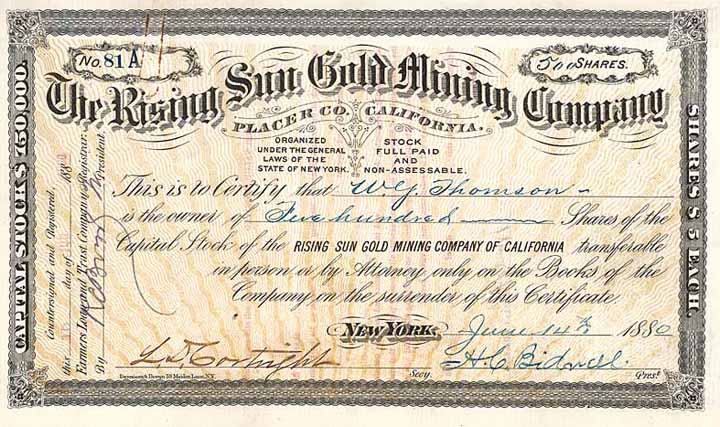 No. 81 A
500 SHARES.
The Rising Sun Gold Mining Company
PLACER CO. CALIFORNIA.
ORGANIZED
UNDER THE GENERAL
LAWS OF THE
STATE OF NEW YORK.
STOCK
FULL PAID
AND
NON-ASSESSABLE.
This is to Certify that W. J. Thomson
is the owner of Five hundred Shares of the
Capital Stock of the RISING SUN GOLD MINING COMPANY OF CALIFORNIA transferable
in person or by Attorney only on the Books of the
Company on the surrender of this Certificate.
NEW YORK, June 14th 1880
L D Cortright Secy.
H. C. Bidwell Prest
59 Maiden Lane, N.Y.
CAPITAL STOCK $ 750,000.
SHARES $ 5 EACH.
Countersigned and Registered,
this day of 188
Farmers Loan and Trust Company, Registrar.
By President.